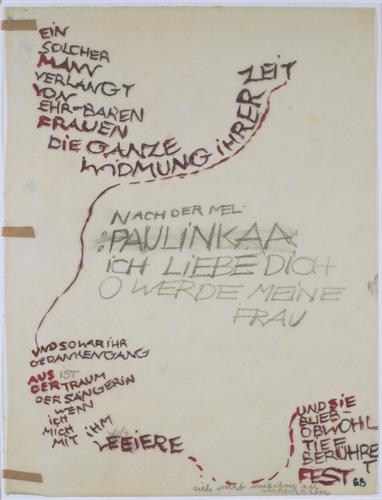 EIN
SOLCHER
MANN
VERLANGT
VON
EHR-BAREN
FRAUEN
DIE GANZE
WIDMUNG IHRER ZEIT
NACH DER MEL.
PAULINKAA
ICH LIEBE DICH
O WERDE MEINE
FRAU
UND SO WAR IHR
GEDANKENGANG
AUS IST
DER TRAUM
DER SÄNGERIN
WENN
ICH
MICH
MIT IHM
FEIERE
UND SIE
BLIEB-
OBWOHL
TIEF
BERÜHRT
FEST